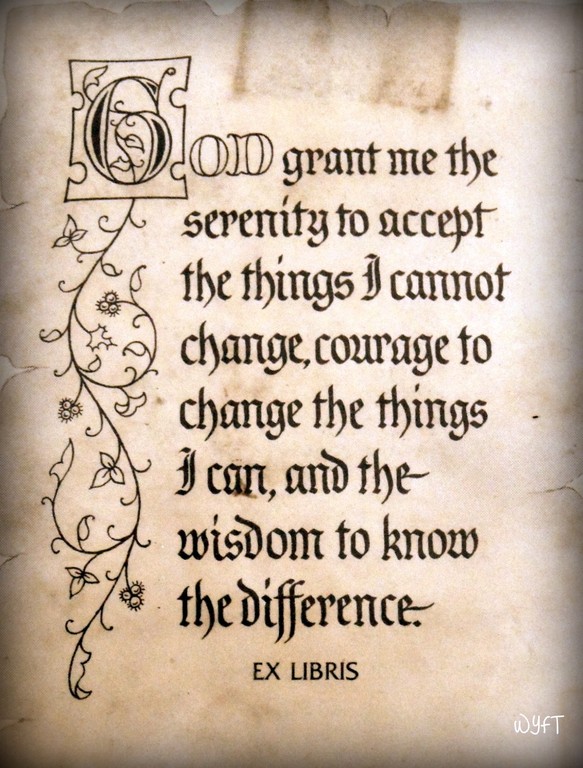 GOD grant me the
serenity to accept
the things I cannot
change, courage to
change the things
I can, and the
wisdom to know
the difference.
EX LIBRIS
WYfT